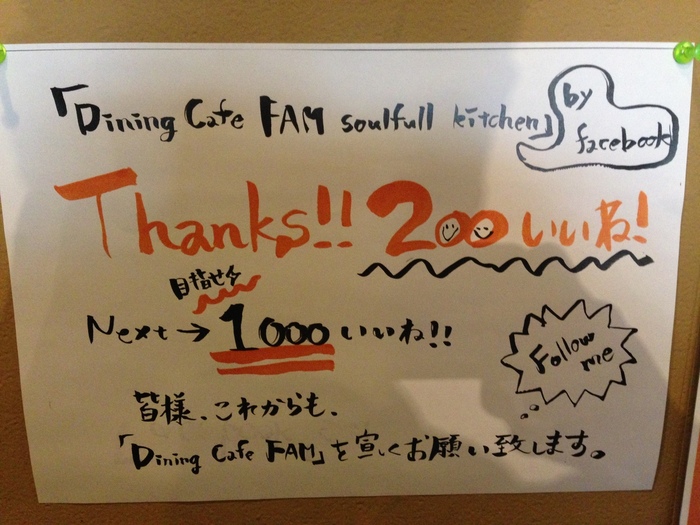 「Dining Cafe FAM soulfull kitchen」
by
facebook
Thanks!! 200いいね!
目指せ
Next→1000いいね!!
Follow
me
皆様、これからも、
「Dining Cafe FAM」を宜しくお願い致します。